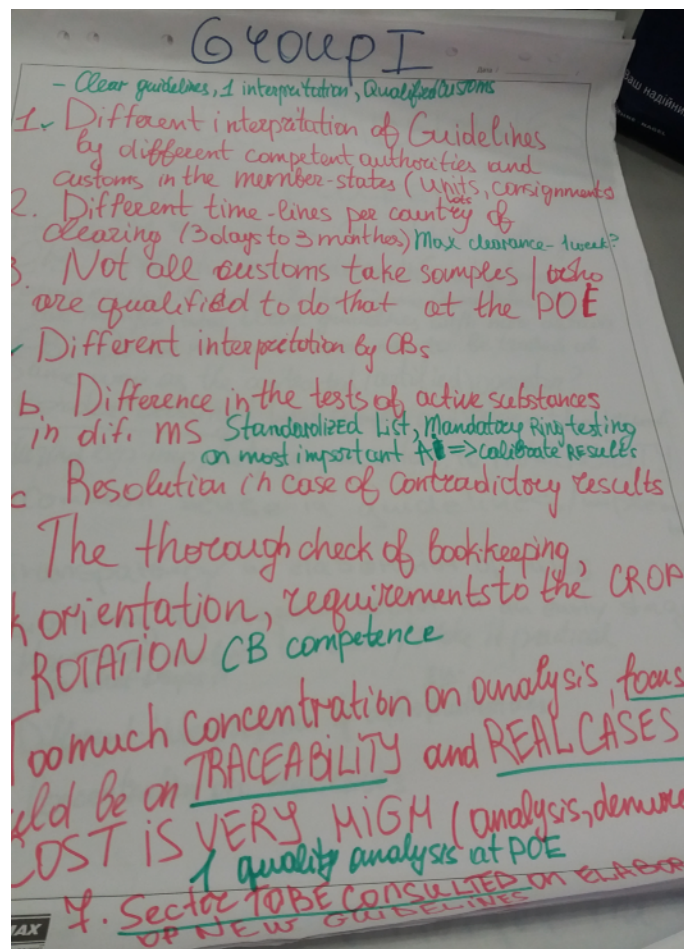 Group I
- Clear guidelines, 1 interpretation, Qualified customs
1. Different interpritation of Guidelines
by different competent authorities and
customs in the member-states (units, consignments
lots
2. Different time-lines per country of
clearing (3 days to 3 monthes) Max clearance - 1 week?
3. Not all customs take samples / who
are qualified to do that at the POE
Different interpretation by CBs
b. Difference in the tests of active substances
in dif. MS Standardized List, Mandatory Ring testing
on most important => calibrate Results
c Resolution in case of contradictory results
The thorough check of bookkeeping,
k orientation, requirements to the CROP
ROTATION CB competence
Too much concentration on analysis, focus
uld be on TRACEABILITY and REAL CASES
COST IS VERY HIGH (analysis, demure
1 quality analysis at POE
7. Sector TO BE CONSULTED on ELABOR
OF NEW GUIDELINES
MAX
Ваш надійни